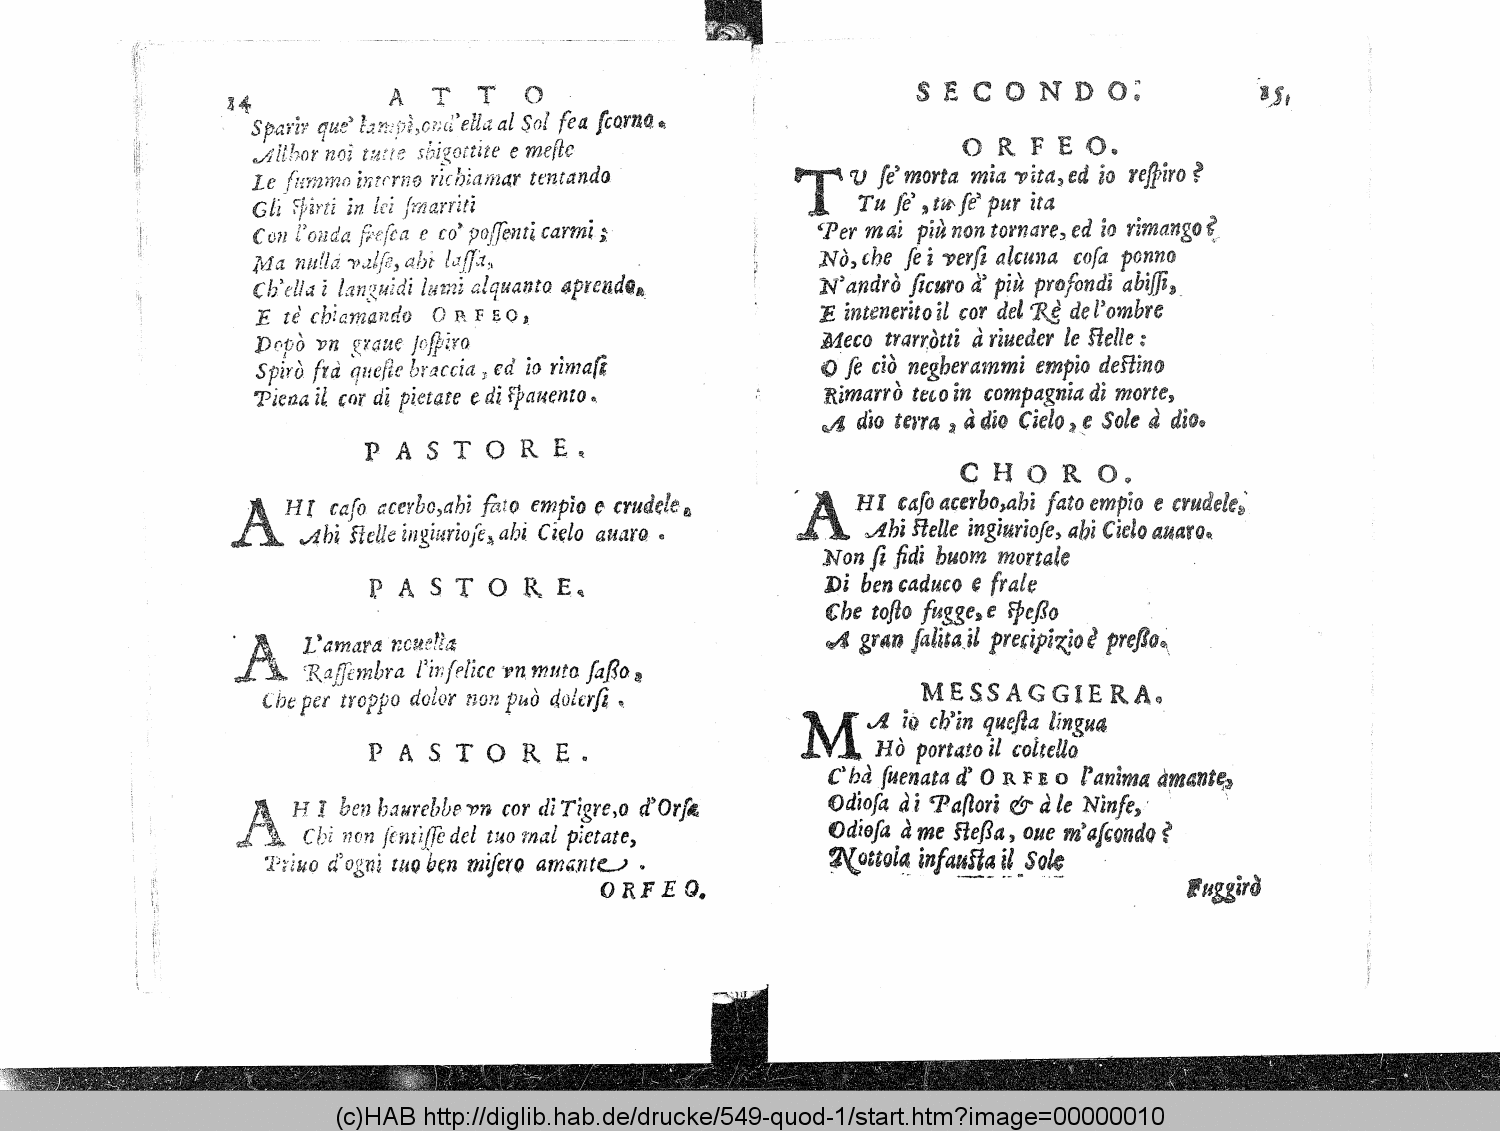 14 ATTO
Sparir que' lampi, ond'ella al Sol fea ſcorno.
Allhor noi tutte sbigottite e meſte
Le fummo intorno richiamar tentando
Gli ſpirti in lei ſmarriti
Con l'onda freſca e co' poſſenti carmi;
Ma nulla valſe, ahi laſſa,
Ch'ella i languidi lumi alquanto aprendo,
E tè chiamando ORFEO,
Dopò vn graue ſoſpiro
Spirò frà queſte braccia, ed io rimaſi
Piena il cor di pietate e di ſpauento.
PASTORE.
AHI caſo acerbo, ahi fato empio e crudele,
Ahi ſtelle ingiurioſe, ahi Cielo auaro.
PASTORE.
AL'amara nouella
Raſſembra l'infelice vn muto ſaßo,
Che per troppo dolor non può dolerſi.
PASTORE.
AHI ben haurebbe vn cor di Tigre, o d'Orſa
Chi non ſentiſſe del tuo mal pietate,
Priuo d'ogni tuo ben miſero amante.
ORFEO.
SECONDO. 15.
ORFEO.
TU ſe' morta mia vita, ed io reſpiro?
Tu ſe', tu ſe' pur ita
Per mai più non tornare, ed io rimango?
Nò, che ſe i verſi alcuna coſa ponno
N'andrò ſicuro à' più profondi abiſſi,
E intenerito il cor del Rè de l'ombre
Meco trarròtti à riueder le ſtelle:
O ſe ciò negherammi empio deſtino
Rimarrò teco in compagnia di morte,
A dio terra, à dio Cielo, e Sole à dio.
CHORO.
AHI caſo acerbo, ahi fato empio e crudele,
Ahi ſtelle ingiurioſe, ahi Cielo auaro.
Non ſi fidi huom mortale
Di ben caduco e frale
Che toſto fugge, e ſpeßo
A gran ſalita il precipizio è preßo.
MESSAGGIERA.
MA io ch'in queſta lingua
Hò portato il coltello
C'hà ſuenata d' ORFEO l'anima amante,
Odioſa à i Paſtori & à le Ninfe,
Odioſa à me ſteßa, oue m'aſcondo?
Nottola infauſta il Sole
Fuggirò
(c)HAB http://diglib.hab.de/drucke/549-quod-1/start.htm?image=00000010